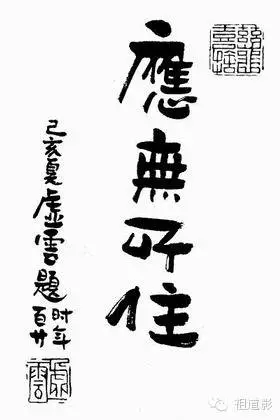 應無所住
己亥夏虛雲題
时年
百廿
虛雲
祖道影